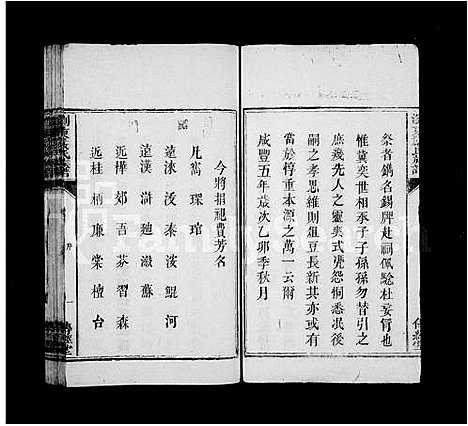 祭者鐫名錫牌赴祠佩驗杜妄冐也
惟冀奕世相承子子孫孫勿替引之
庶幾先人之靈爽式憑怨恫悉泯後
嗣之孝思維則俎豆長新其亦或有
當於惇重本源之萬一云爾
咸豐五年歲次乙卯季秋月
今將捐祀費芳名
凡嵩 環 琯
遠洙 汶 泰 浚 鯤 河
遠漢 滸 廸 濈 蘇
近擇 郊 吾 芬 習 森
近桂 柄 廉 棠 檀 台